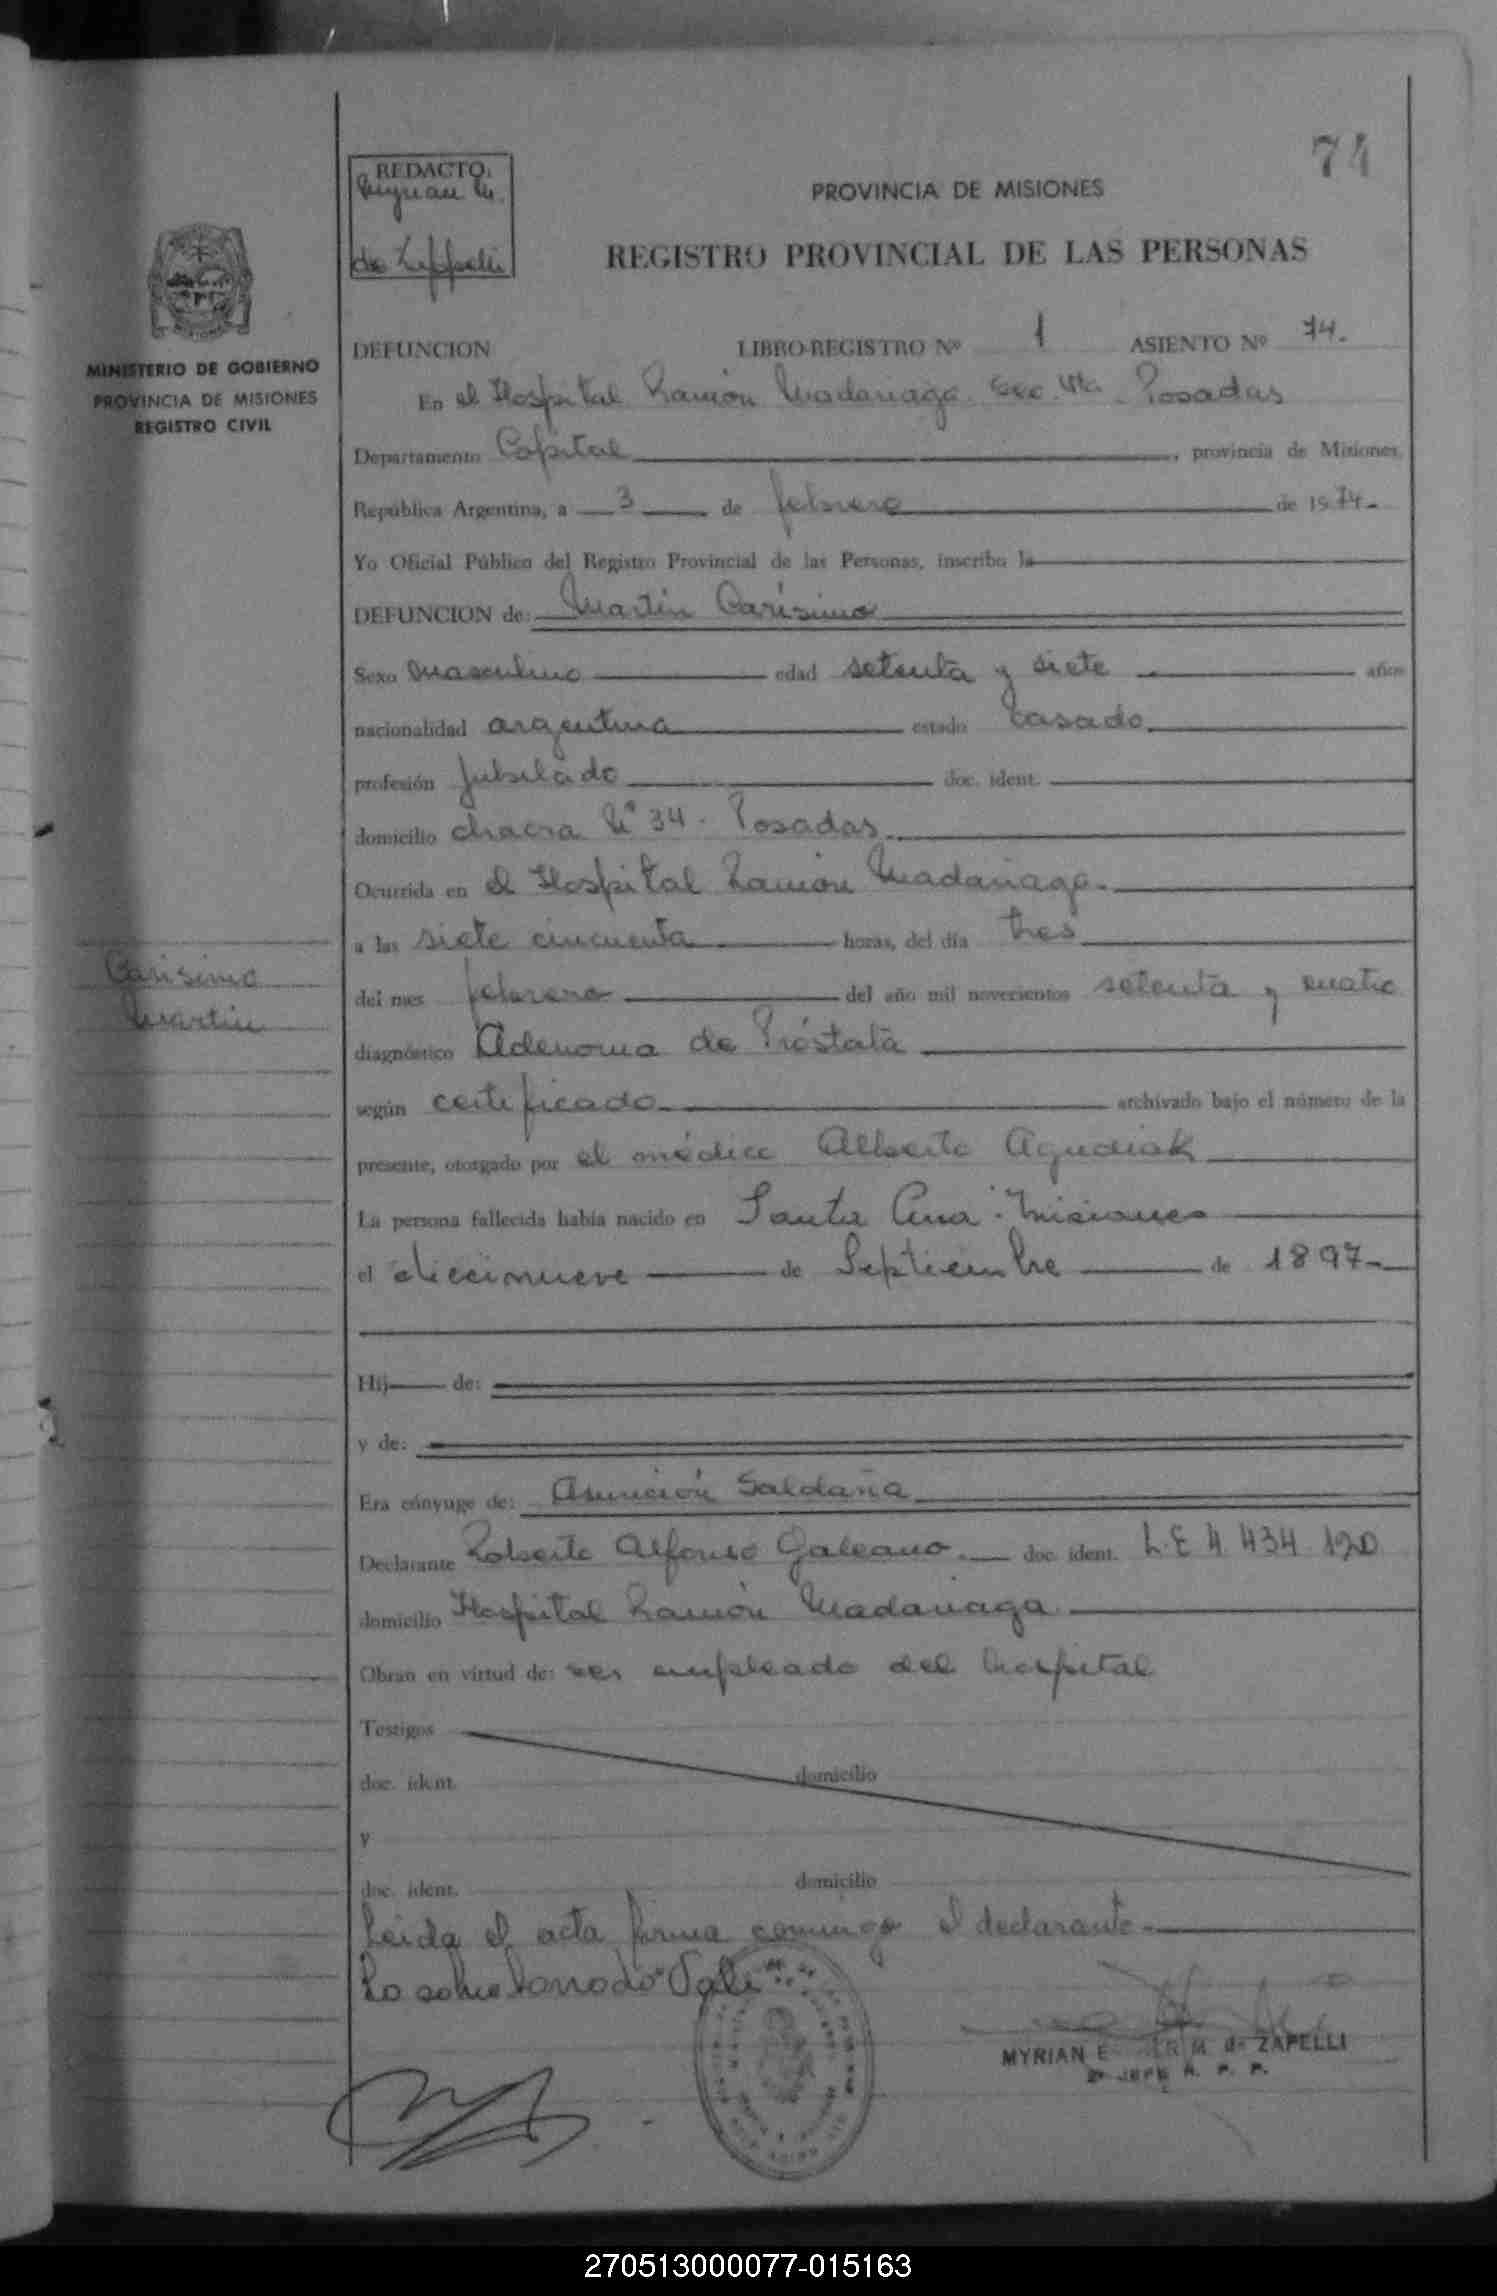 74
REDACTO:
Myrian M.
de Zappelli
PROVINCIA DE MISIONES
REGISTRO PROVINCIAL DE LAS PERSONAS
MINISTERIO DE GOBIERNO
PROVINCIA DE MISIONES
REGISTRO CIVIL
DEFUNCION LIBRO-REGISTRO Nº 1 ASIENTO Nº 74.
En el Hospital Ramón Madariaga. Sec. 4ta. Posadas
Departamento Capital, provincia de Misiones,
República Argentina, a 3 de febrero de 1974.-
Yo Oficial Público del Registro Provincial de las Personas, inscribo la
DEFUNCION de: Martín Carísimo
Sexo masculino edad setenta y siete años
nacionalidad argentina estado casado
profesión jubilado doc. ident.
domicilio chacra Nº 34. Posadas
Ocurrida en el Hospital Ramón Madariaga.
a las siete cincuenta horas, del día tres
Carisimo
Martin
del mes febrero del año mil novecientos setenta y cuatro
diagnóstico Adenoma de Próstata
según certificado archivado bajo el número de la
presente, otorgado por el médico Alberto Agudiak
La persona fallecida había nacido en Santa Ana. Misiones
el diecinueve de Septiembre de 1897-
Hij de:
y de:
Era cónyuge de: Asunción Saldaña
Declarante Roberto Alfonso Galeano. doc. ident. L E 4 434 120
domicilio Hospital Ramón Madariaga
Obran en virtud de: ser empleado del hospital
Testigos
doc. ident. domicilio
y
doc. ident. domicilio
Leida el acta firma conmigo el declarante.
Lo sobre borrado "Vale
MYRIAN E M. de ZAPELLI
2º JEFE R. P. P.
270513000077-015163